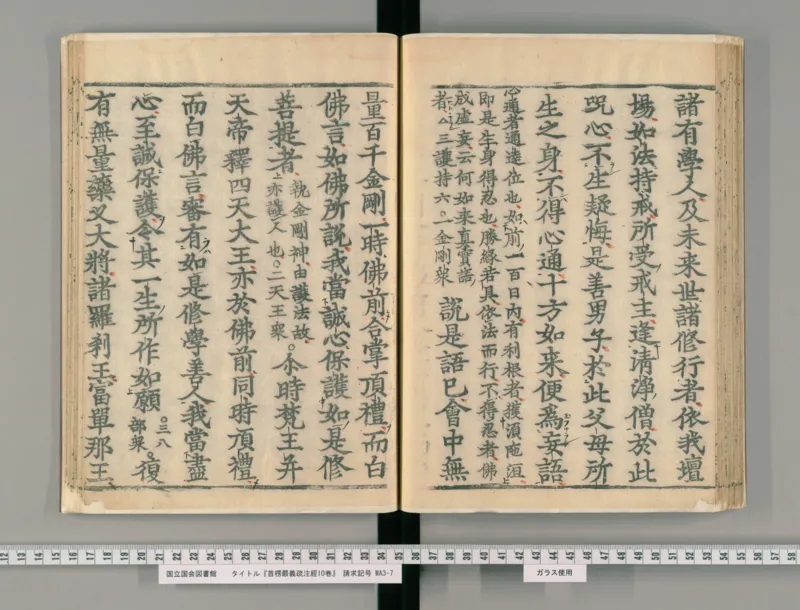 諸有學人及未来世諸修行者依我壇
場如法持戒所受戒主逢清淨僧於此
呪心不生疑悔是善男子於此父母所
生之身不得心通十方如来便為妄語
心通者通達位也如前一百日内有利根者獲湏陁洹
即是生身得忍也勝縁若具依法而行不得忍者佛
成虛妄云何如来真實語
者△三護持六○一金剛衆
說是語已會中無
量百千金剛一時佛前合掌頂禮而白
佛言如佛所說我當誠心保護如是修
菩提者執金剛神由護法故亦護人也○二天王衆○尒時梵王并
天帝釋四天大王亦於佛前同時頂禮
而白佛言審有如是修學善人我當盡
心至誠保護令其一生所作如願○三八部衆○復
有無量藥叉大將諸羅刹王富單那王
国立国会図書館 タイトル『首楞嚴義疏注經10巻』 請求記号 WA3-7
ガラス使用